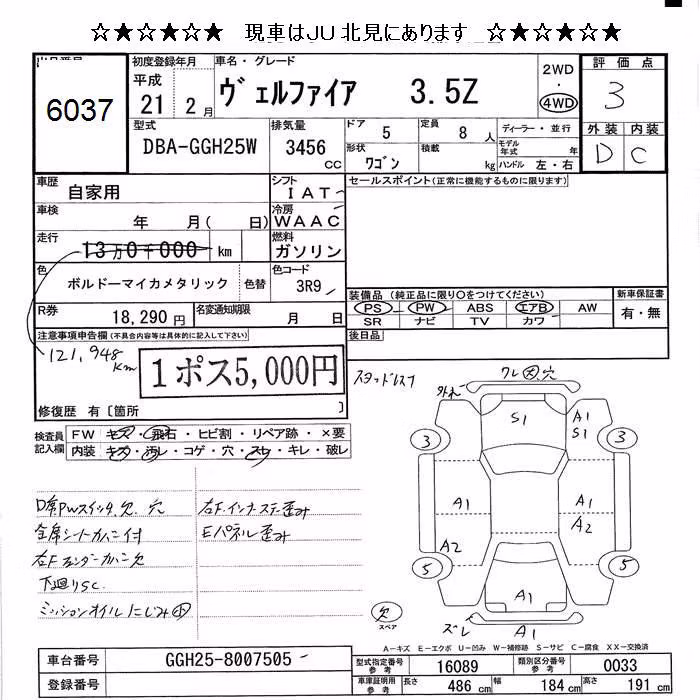 ☆★☆★☆★　現車はJU北見にあります　☆★☆★☆★
6037
初度登録年月
平成
21 2月
車名・グレード
ヴェルファイア 3.5Z
2WD
・
4WD
評価点
3
外装 内装
D C
型式
DBA-GGH25W
排気量
3456
CC
ドア 5
定員 8 人
形状 ワゴン
積載 kg
ディーラー・並行
モデル年式 年
ハンドル 左・右
車歴 自家用
シフト IAT
車検 年 月( 日)
冷房 WAAC
走行 13万0千000 km
燃料 ガソリン
色 ボルドーマイカメタリック 色替
色コード 3R9
R券 18,290円
名変通知期限 月 日
セールスポイント(正常に機能するものに限ります)
装備品 (純正品に限り○をつけてください)
PS PW ABS エアB AW
SR ナビ TV カワ
新車保証書
有・無
後日品
注意事項申告欄(不具合内容等は具体的に記入して下さい)
121,948km
1ポス5,000円
修復歴 有〔箇所 〕
スタッドレス
検査員記入欄
FW キズ・飛石・ヒビ割・リペア跡・×要
内装 キズ・汚レ・コゲ・穴・スレ・キレ・破レ
D席PWスイッチ欠、穴
全席シートカバー付
右Fフェンダーカバー欠
下廻りSC
ミッションオイルにじみ中
右F.インナーステー歪み
Eパネル歪み
ワレ大穴
外れ
S1
A1
S1
3
3
A1
A1
A2
A2
5
5
A1
欠
スペア
ズレ
A1
A－キズ E－エクボ U－凹み W－補修跡 S－サビ C－腐食 XX－交換済
車台番号 GGH25-8007505
登録番号
型式指定番号参考 16089
類別区分番号参考 0033
車庫証明用参考 長さ 486cm 幅 184cm 高さ 191cm